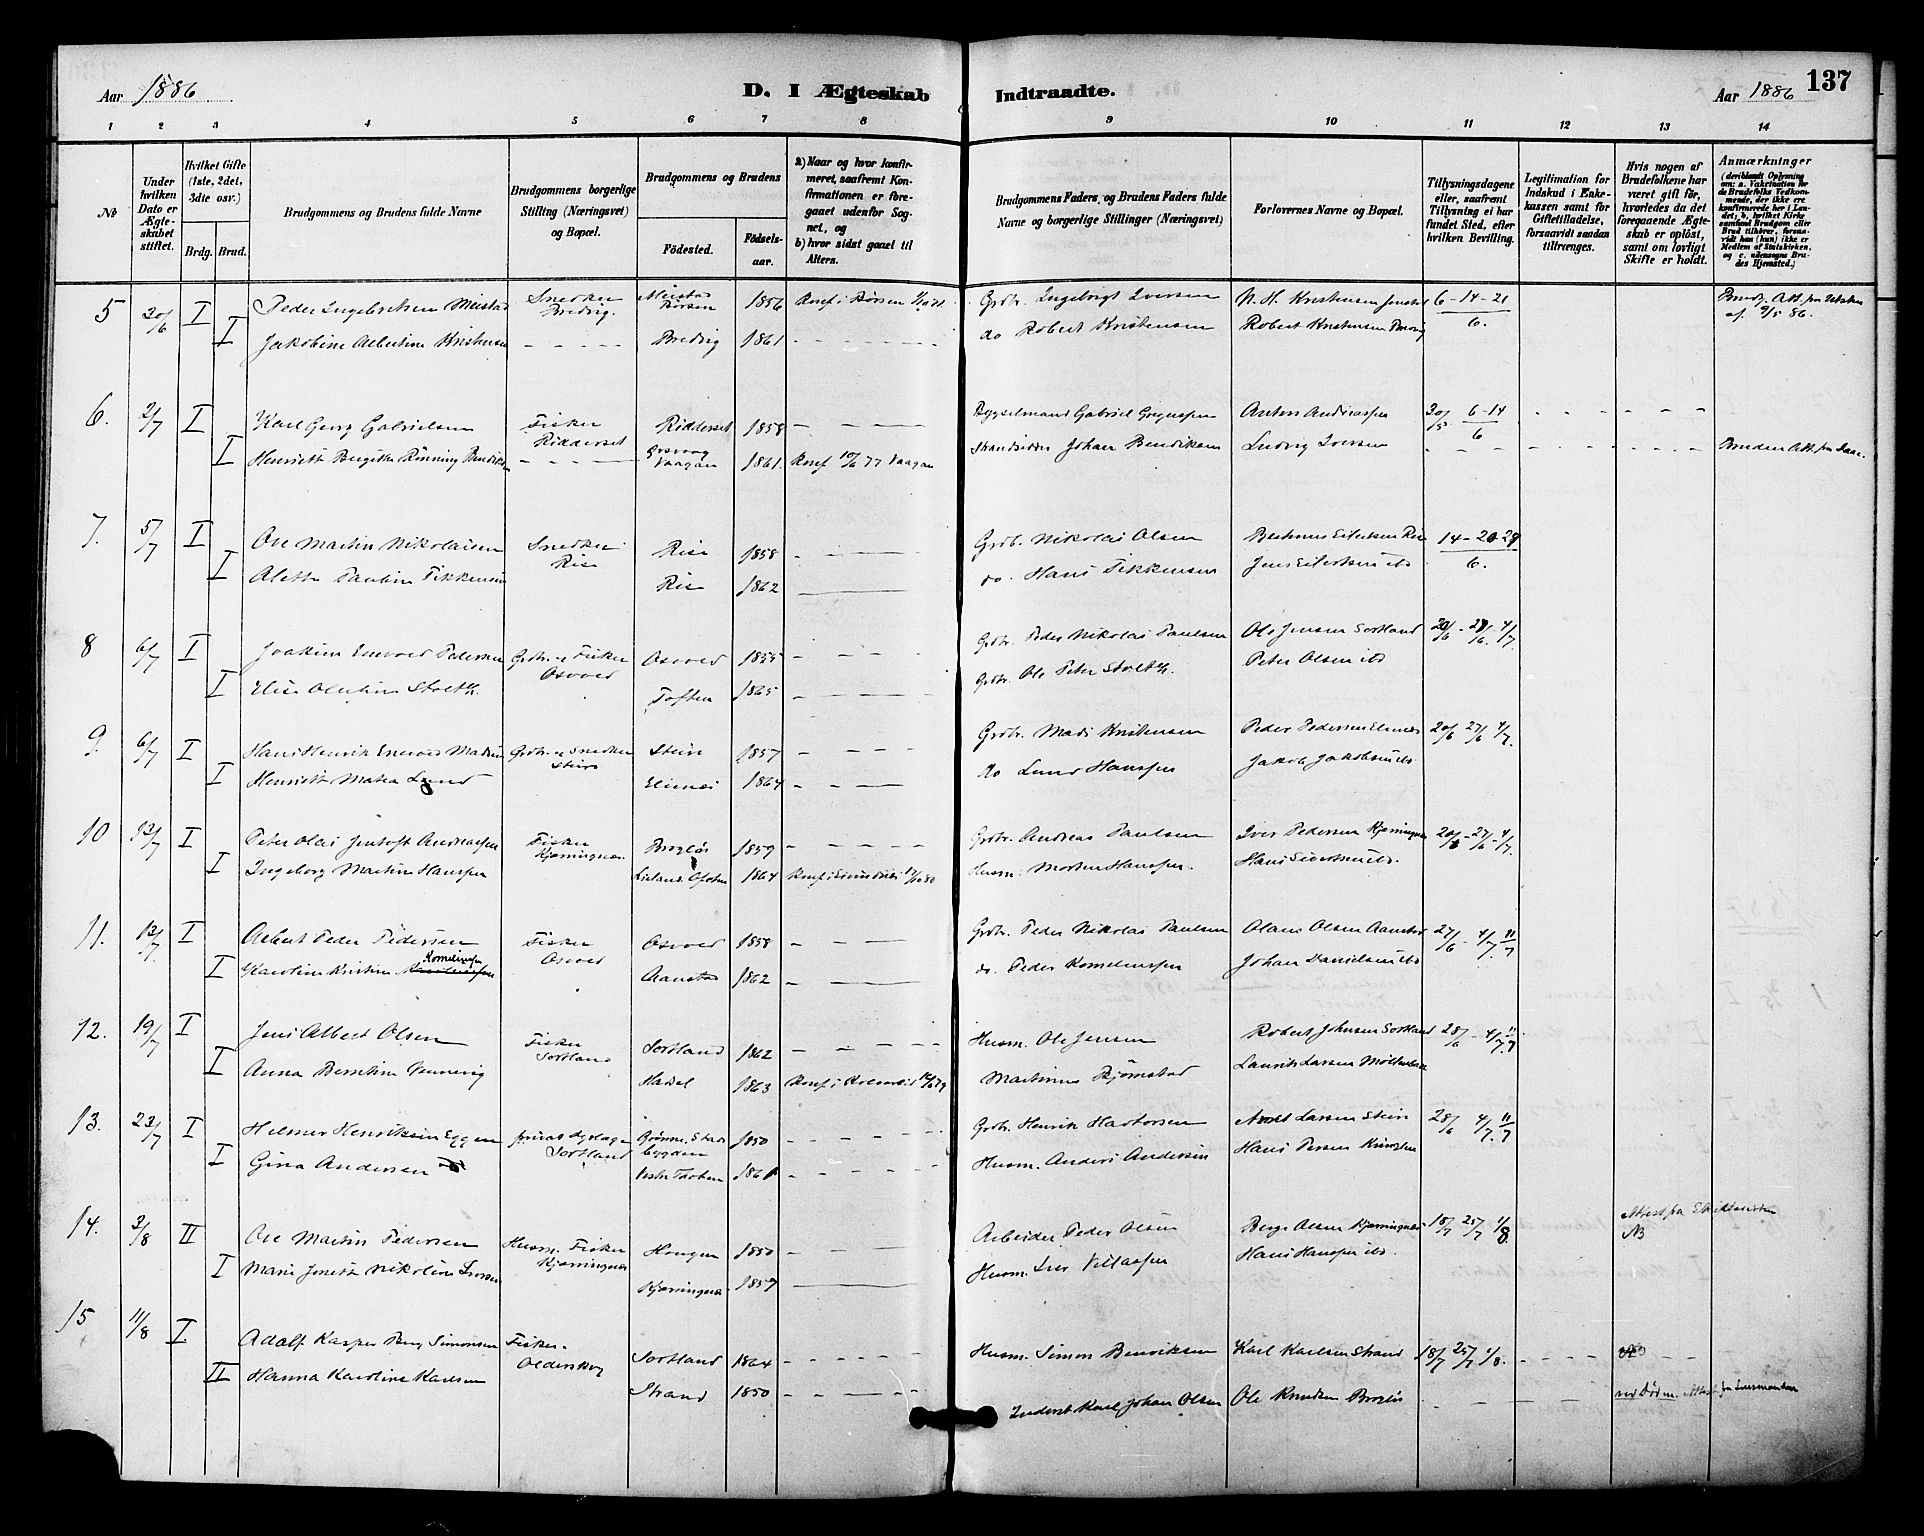 Aar 1886
D. I Ægteskab Indtraadte.
Aar 1886
137
1 2 3 4 5 6 7 8 9 10 11 12 13 14
№
Under hvilken Dato er Ægteskabet stiftet.
Hvilket Gifte (1ste, 2det, 3die osv.)
Brdg. Brud.
Brudgommens og Brudens fulde Navne
Brudgommens borgerlige Stilling (Næringsvei) og Bopæl.
Brudgommens og Brudens
Födested.
Födselsaar.
a) Naar og hvor konfirmeret, saafremt Konfirmationen er foregaaet udenfor Sognet, og
b) hvor sidst gaaet til Alters.
Brudgommens Faders, og Brudens Faders fulde Navne og borgerlige Stillinger (Næringsvei)
Forlovernes Navne og Bopæl.
Tillysningsdagene eller, saafremt Tillysning ei har fundet Sted, efter hvilken Bevilling.
Legitimation for Indskud i Enkekassen samt for Giftetilladelse, forsaavidt saadan tiltrænges.
Hvis nogen af Brudefolkene har været gift för, hvorledes da det foregaaende Ægteskab er oplöst, samt om lovligt Skifte er holdt.
Anmærkninger (deriblandt Oplysning om: a. Vakcination for de Brudefolks Vedkommende, der ikke ere konfirmerede her i Landet; b. hvilket Kirkesamfund Brudgom eller Brud tilhörer, forsaavidt han (hun) ikke er Medlem af Statskirken, og c. udensogns Brudes Hjemsted.)
5 20/6 I Peder Ingebrigtsen Meistad Snedker Bredvig. Meistad Börsen 1856 Konf i Börsen Grdbr. Ingebrigt Iversen N. H. Kristensen 6-14-21/6.
I Jakobine Albertine Kristensen Bredvig 1861 do Robert Kristensen Robert Kristensen Bredvig
6. 2/7 I Karl Georg Gabrielsen Fisker Ridderset Ridderset 1858 Bygselmand Gabriel Anton Andreassen 30/5 6-14/6
I Henriette Bergitte Rönning Bendiksen Vaagan 1861. Konf 77 Vaagan Strandsidder Johan Bendiksen Ludvig Iversen Bruden Att. fra
7. 5/7 I Ole Martin Nikolaisen Snedker Rise Rise 1858 Grdb. Nikolai Olsen 14-20-27/6.
I Alette Pauline Tikkensen Rise 1862 do. Hans Tikkensen Jens Eilertsen ibd
8 6/7 I Joakim Enevold Pedersen Grdbr. & Fisker Osvold Osvold 1855 Grdbr. Peder Nikolai Paulsen Ole Jensen Sortland 20/6-27/6 4/7.
I Elise Olentine Stoltz. Toften 1865 Grdbr. Ole Peter Stoltz. Peter Olsen ibd
9. 6/7 I Hans Henrik Enevold Madsen Grdbr. & Snedker Stein Stein 1857 Grdbr. Mads Kristensen Peder Pedersen 20/6 27/6 4/7.
I Henriette Lund 1864 do Lund Hanssen Jakob Jakobsen ibd.
10 12/7 I Peter Olai Jentoft Andreassen Fisker Kjerringnes. Breglös 1859 Grdbr. Andreas Paulsen Iver Pedersen Kjerringnes 20/6-27/6-4/7.
I Ingeborg Martine Hanssen 1864 Husm. Morten Hanssen Hans Sivertsen ibd.
11. 12/7 I Albert Peder Pedersen Fisker Osvold Osvold 1858 Grdbr. Peder Nikolai Paulsen Olaus Olsen Aanstad 27/6-4/7. 11/7
I Karoline Kristine Korneliussen Aanstad 1862 do. Peder Korneliussen Johan Danielsen ibd
12. 19/7 I Jens Albert Olsen Fisker Sortland Sortland 1862 Husm. Ole Jensen Robert Johnsen Sortland 28/6-4/7. 11/7
I Anna Berntine Hadsel 1863 Martinus Björnstad Laurits Larsen
13. 23/7 I Helmer Henriksen Eggen Sortland 1850 Grdbr. Henrik Larsen Stein 28/6 4/7. 11/7
I Gina Andersen 1861 Husm. Anders Andersen Hans Persen
14. 3/8 II Ole Martin Pedersen Husm. Fisker Kjerringnes Haugen 1850 Arbeider Peder Olsen Berge Olsen Kjerringnes 18/7 25/7 1/8. Attest fra NB
I Marie Jonette Nikoline Iversen Kjerringnes 1857 Husm. Iver Villassen Hans Hanssen ibd.
15 11/8 I Adolf Kasper Berg Simonsen Fisker. Olderskog Sortland 1864 Husm. Simon Bendiksen Karl Karlsen Strand 18/7 25/7 1/8.
II Hanna Karoline Karlsen Strand 1850 Inderst Karl Johan Olsen Ole Knudsen Breglös ved Död. Attest fra Lensmanden